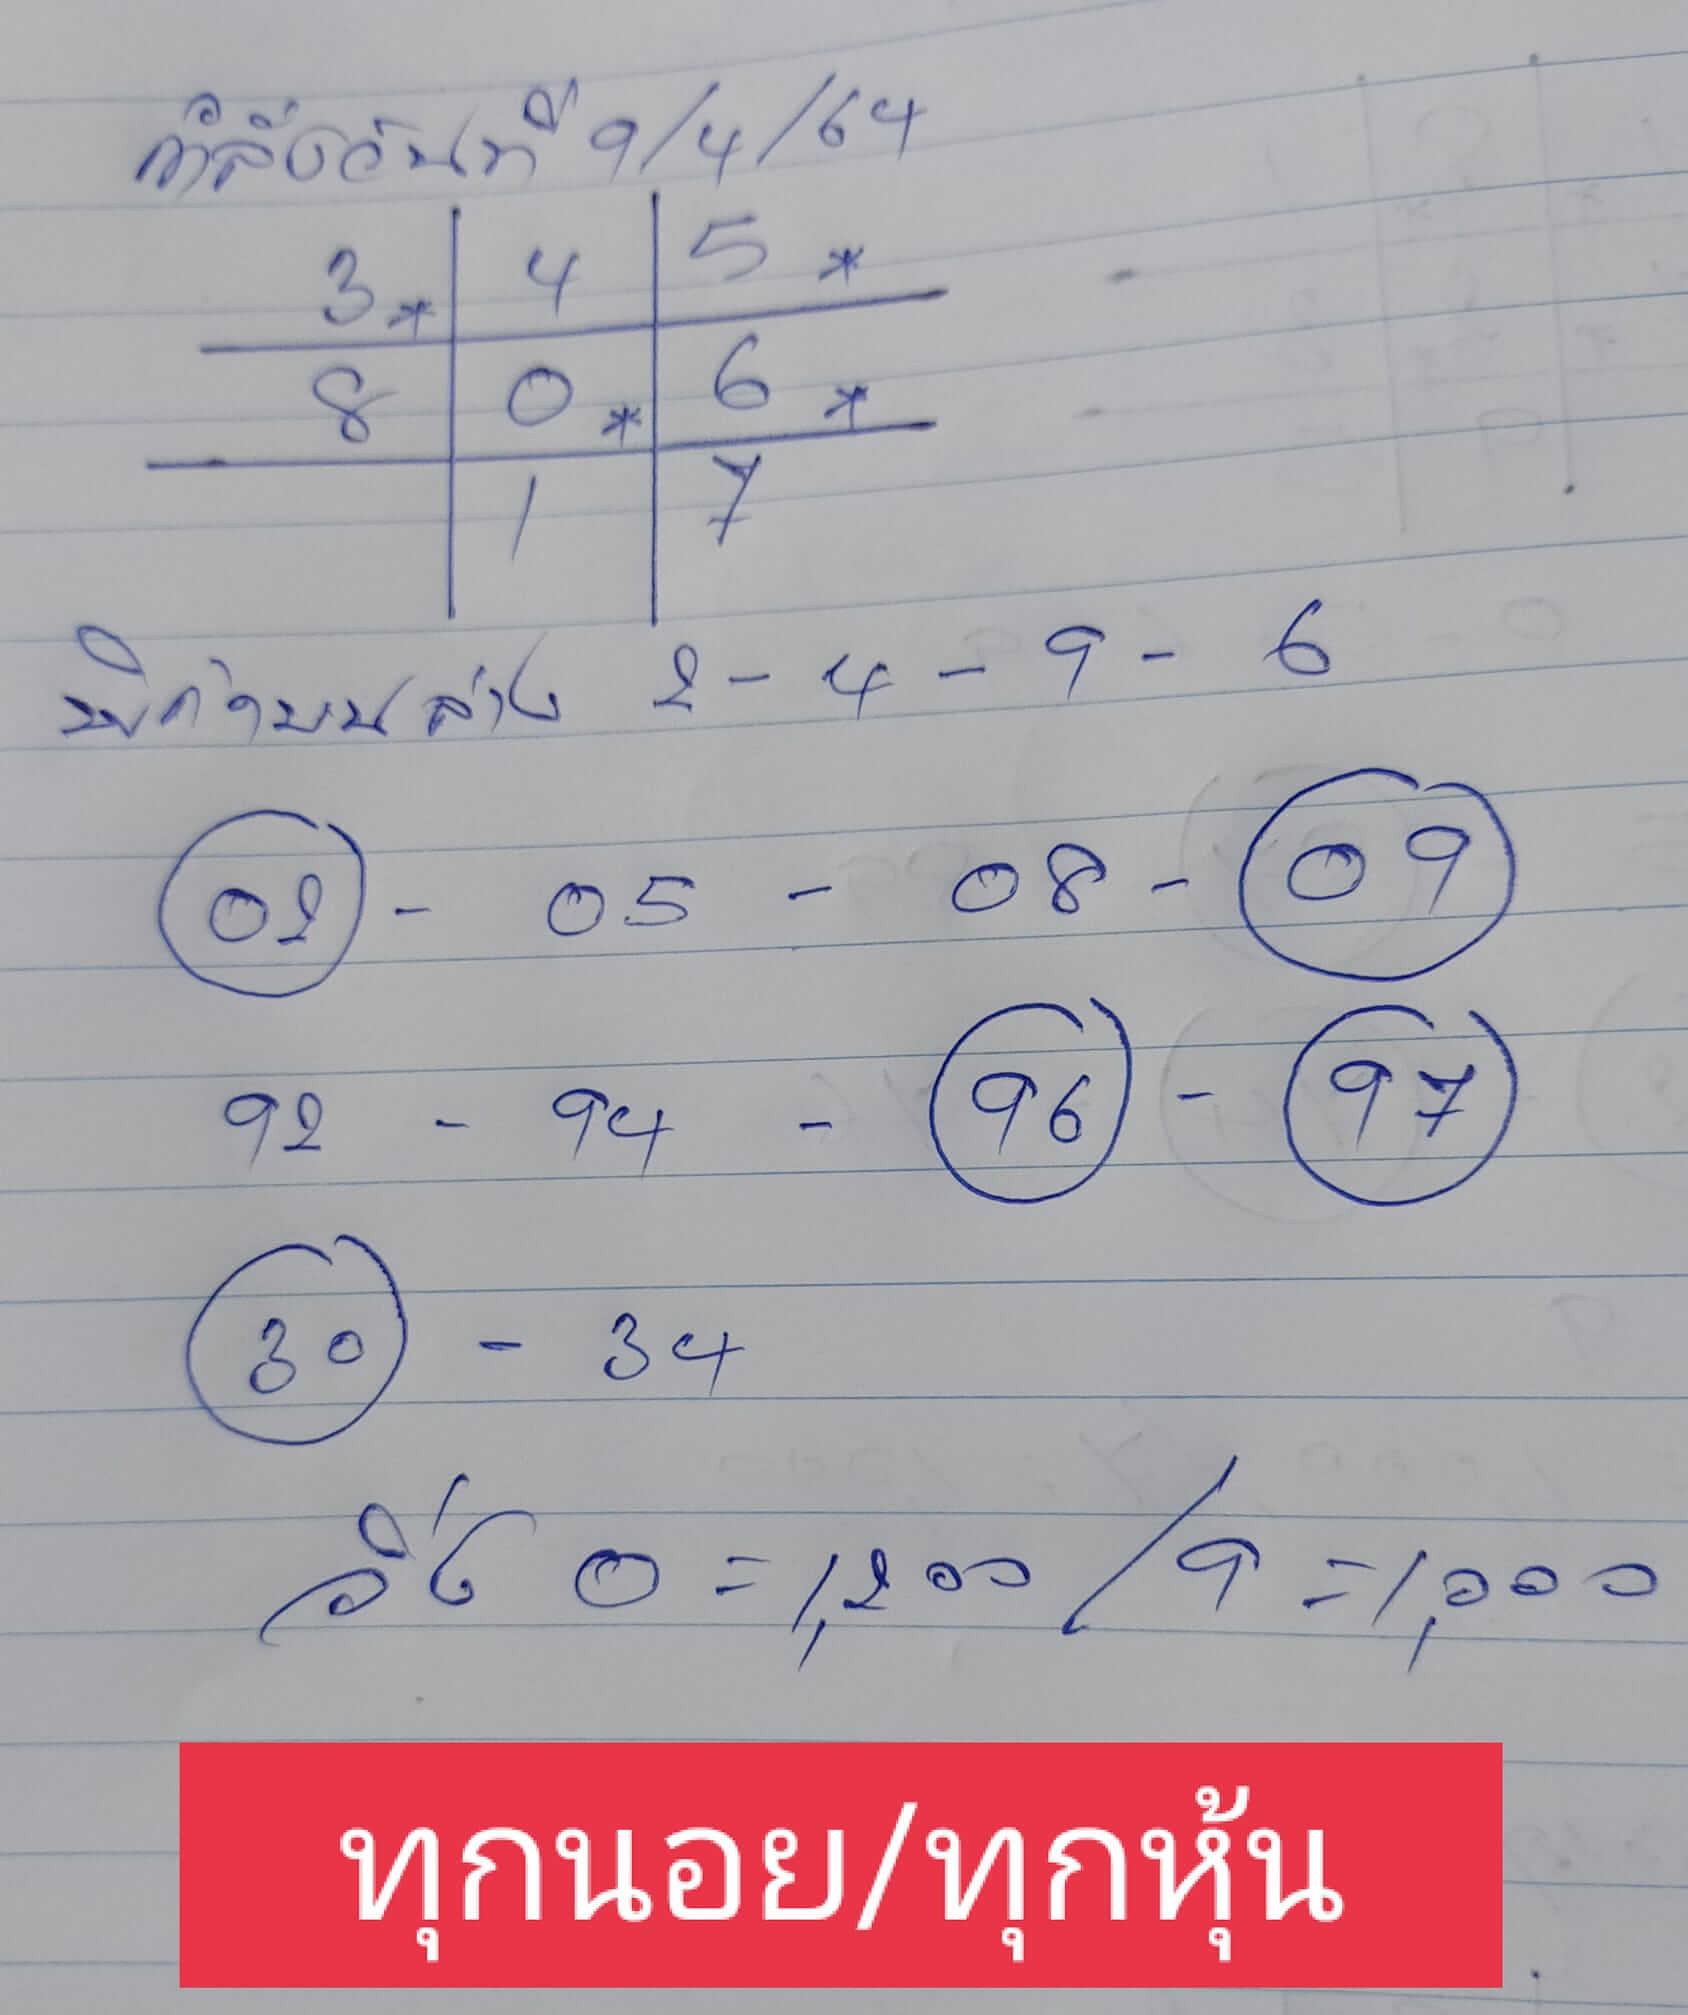 กำลังวันที่ 9/4/64
3* 4 5*
8 0* 6*
1 7
พิกัดบนล่าง 2-4-9-6
02 - 05 - 08 - 09
92 - 94 - 96 - 97
30 - 34
วิ่ง 0 = 1,200 / 9 = 1,000
ทุกนอย/ทุกหุ้น